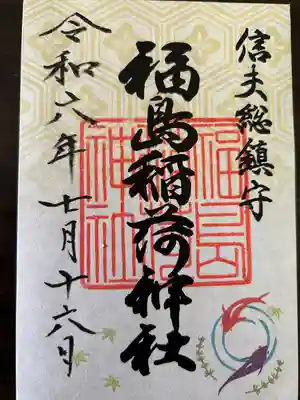 信夫総鎮守
福島稲荷神社
令和六年七月十六日
福島
神社